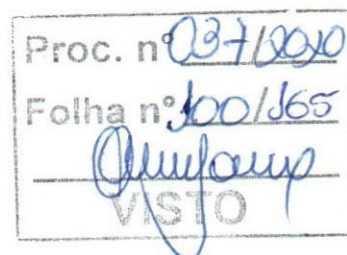 Proc. nº 037/2020
Folha nº 100/165
VISTO